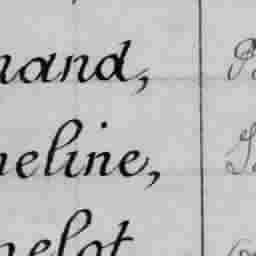 nand,
neline,
nelot